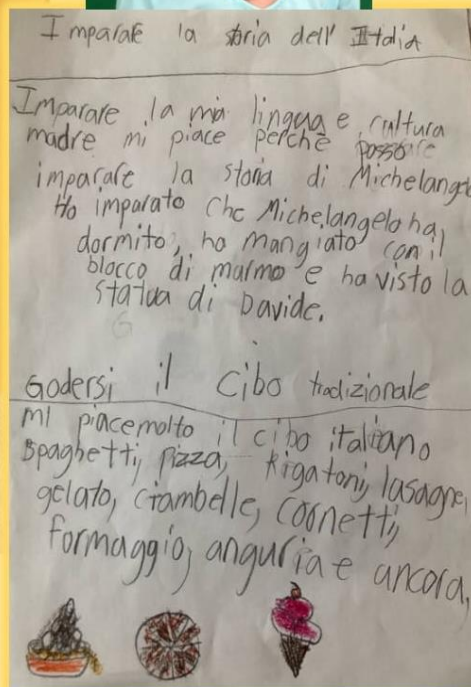 Imparare la storia dell' Italia
Imparare la mia lingua e cultura
madre mi piace perchè posso
imparare la storia di Michelangelo
Ho imparato che Michelangelo ha
dormito, ho mangiato con il
blocco di marmo e ha visto la
statua di Davide.
Godersi il cibo tradizionale
Mi piace molto il cibo italiano
Spaghetti, pizza, Rigatoni, lasagne,
gelato, ciambelle, cornetti,
formaggio, anguria e ancora,